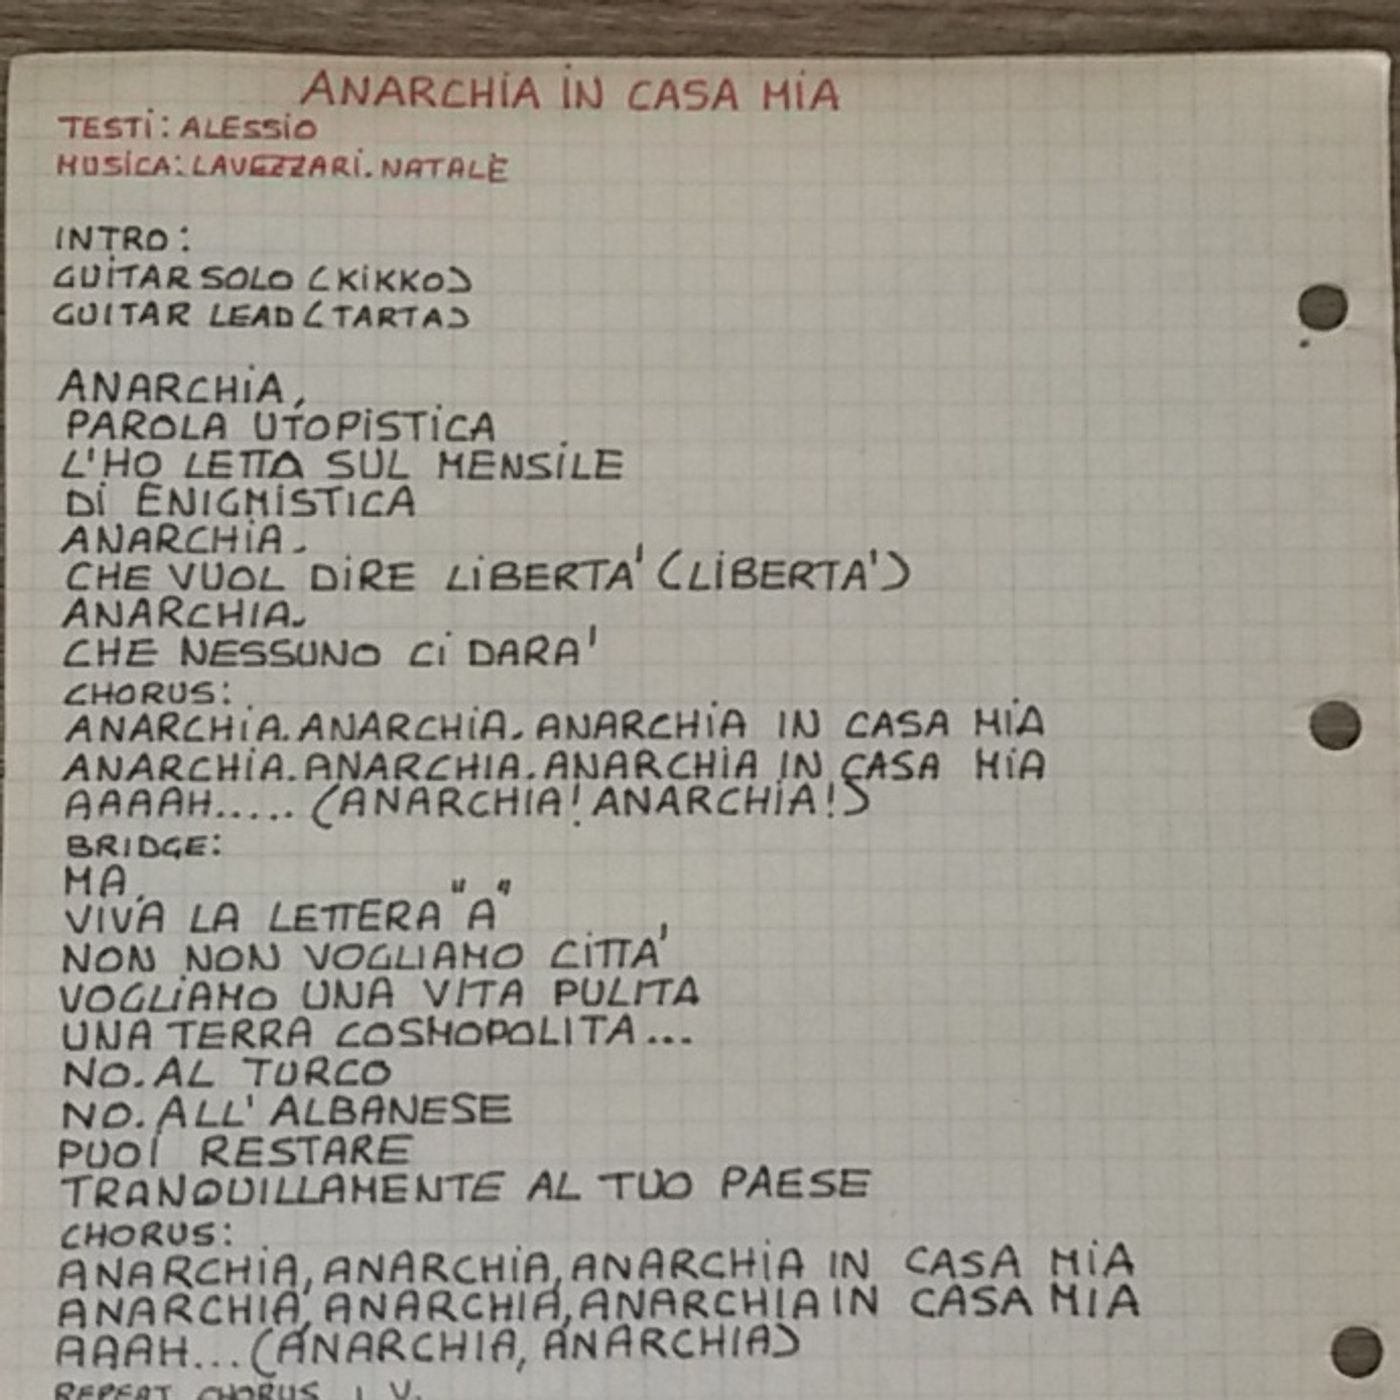 ANARCHIA IN CASA MIA
TESTI: ALESSIO
MUSICA: LAVEZZARI. NATALE
INTRO:
GUITAR SOLO (KIKKO)
GUITAR LEAD (TARTA)
ANARCHIA,
PAROLA UTOPISTICA
L'HO LETTA SUL MENSILE
DI ENIGMISTICA
ANARCHIA.
CHE VUOL DIRE LIBERTA' (LIBERTA')
ANARCHIA.
CHE NESSUNO CI DARA'
CHORUS:
ANARCHIA. ANARCHIA. ANARCHIA IN CASA MIA
ANARCHIA. ANARCHIA. ANARCHIA IN CASA MIA
AAAAH..... (ANARCHIA! ANARCHIA!)
BRIDGE:
MA.
VIVA LA LETTERA "A"
NON NON VOGLIAMO CITTA'
VOGLIAMO UNA VITA PULITA
UNA TERRA COSMOPOLITA...
NO. AL TURCO
NO. ALL' ALBANESE
PUOI RESTARE
TRANQUILLAMENTE AL TUO PAESE
CHORUS:
ANARCHIA, ANARCHIA, ANARCHIA IN CASA MIA
ANARCHIA, ANARCHIA, ANARCHIA IN CASA MIA
AAAH... (ANARCHIA, ANARCHIA)
REPEAT CHORUS